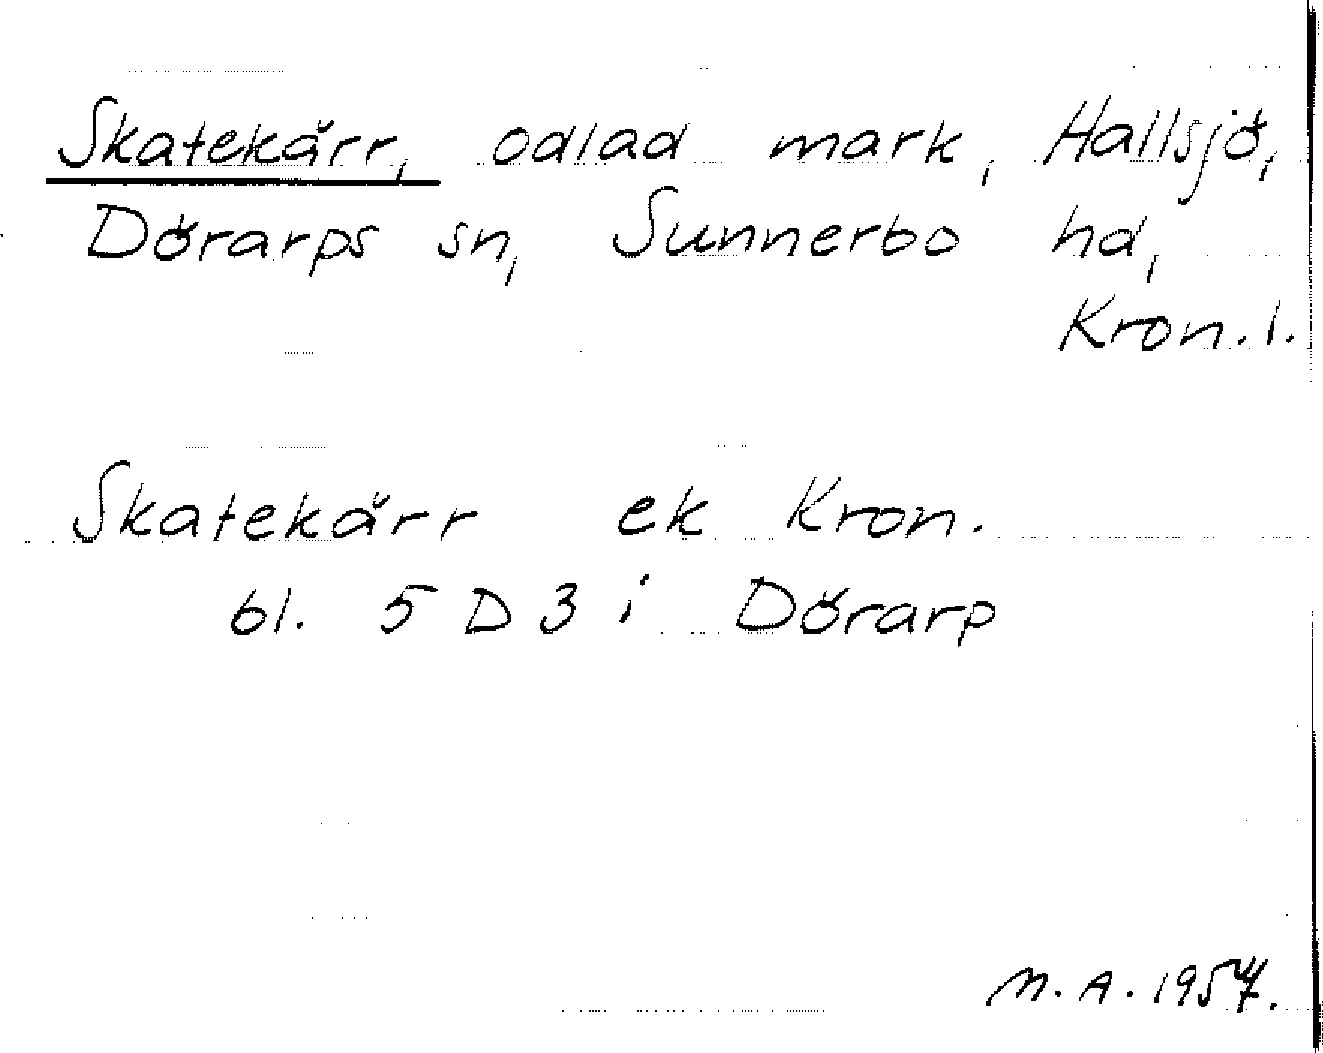 Skatekärr, odlad mark, Hallsjö,
Dörarps sn, Sunnerbo hd,
Kron. l.
Skatekärr ek Kron.
bl. 5 D 3 i Dörarp
M. A. 1957.